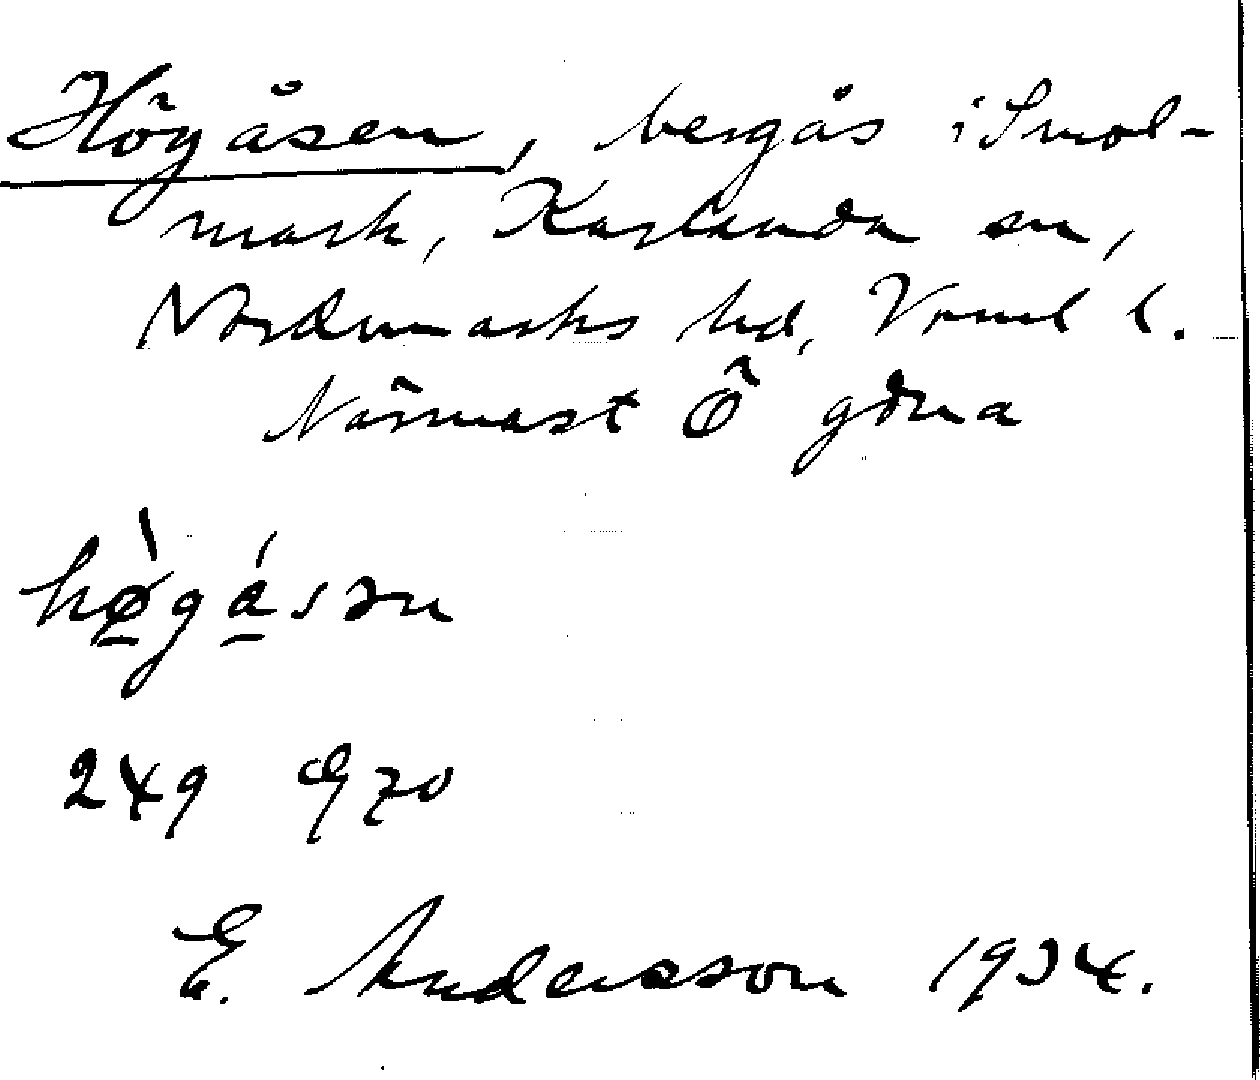 Högåsen, bergås i Smol-
mark, Karlanda sn,
Nordmarks hd, Vrml l.
Närmast Ö gdna
hø̀gásən
249 G 70
E. Andersson 1934.